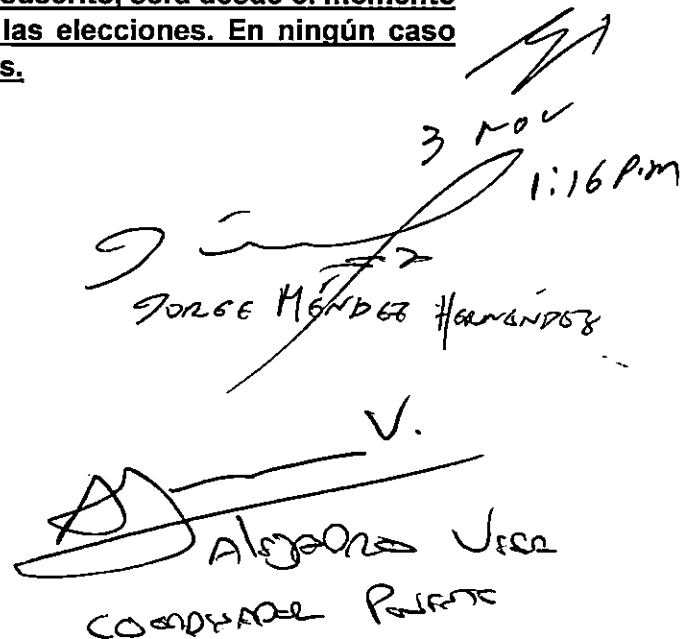 las elecciones. En ningún caso
s.
3 NOV
1:16 P.m
JORGE MÉNDEZ HERNÁNDEZ
V.
Alejandro Vega
COORDINADOR Ponente